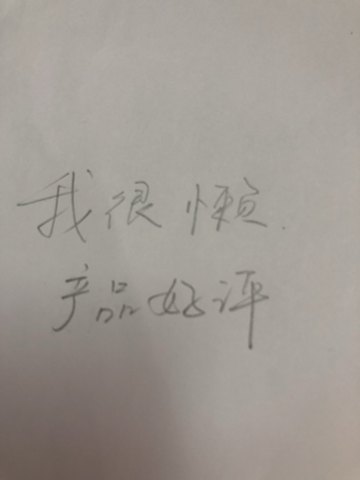 我很懒.
产品好评